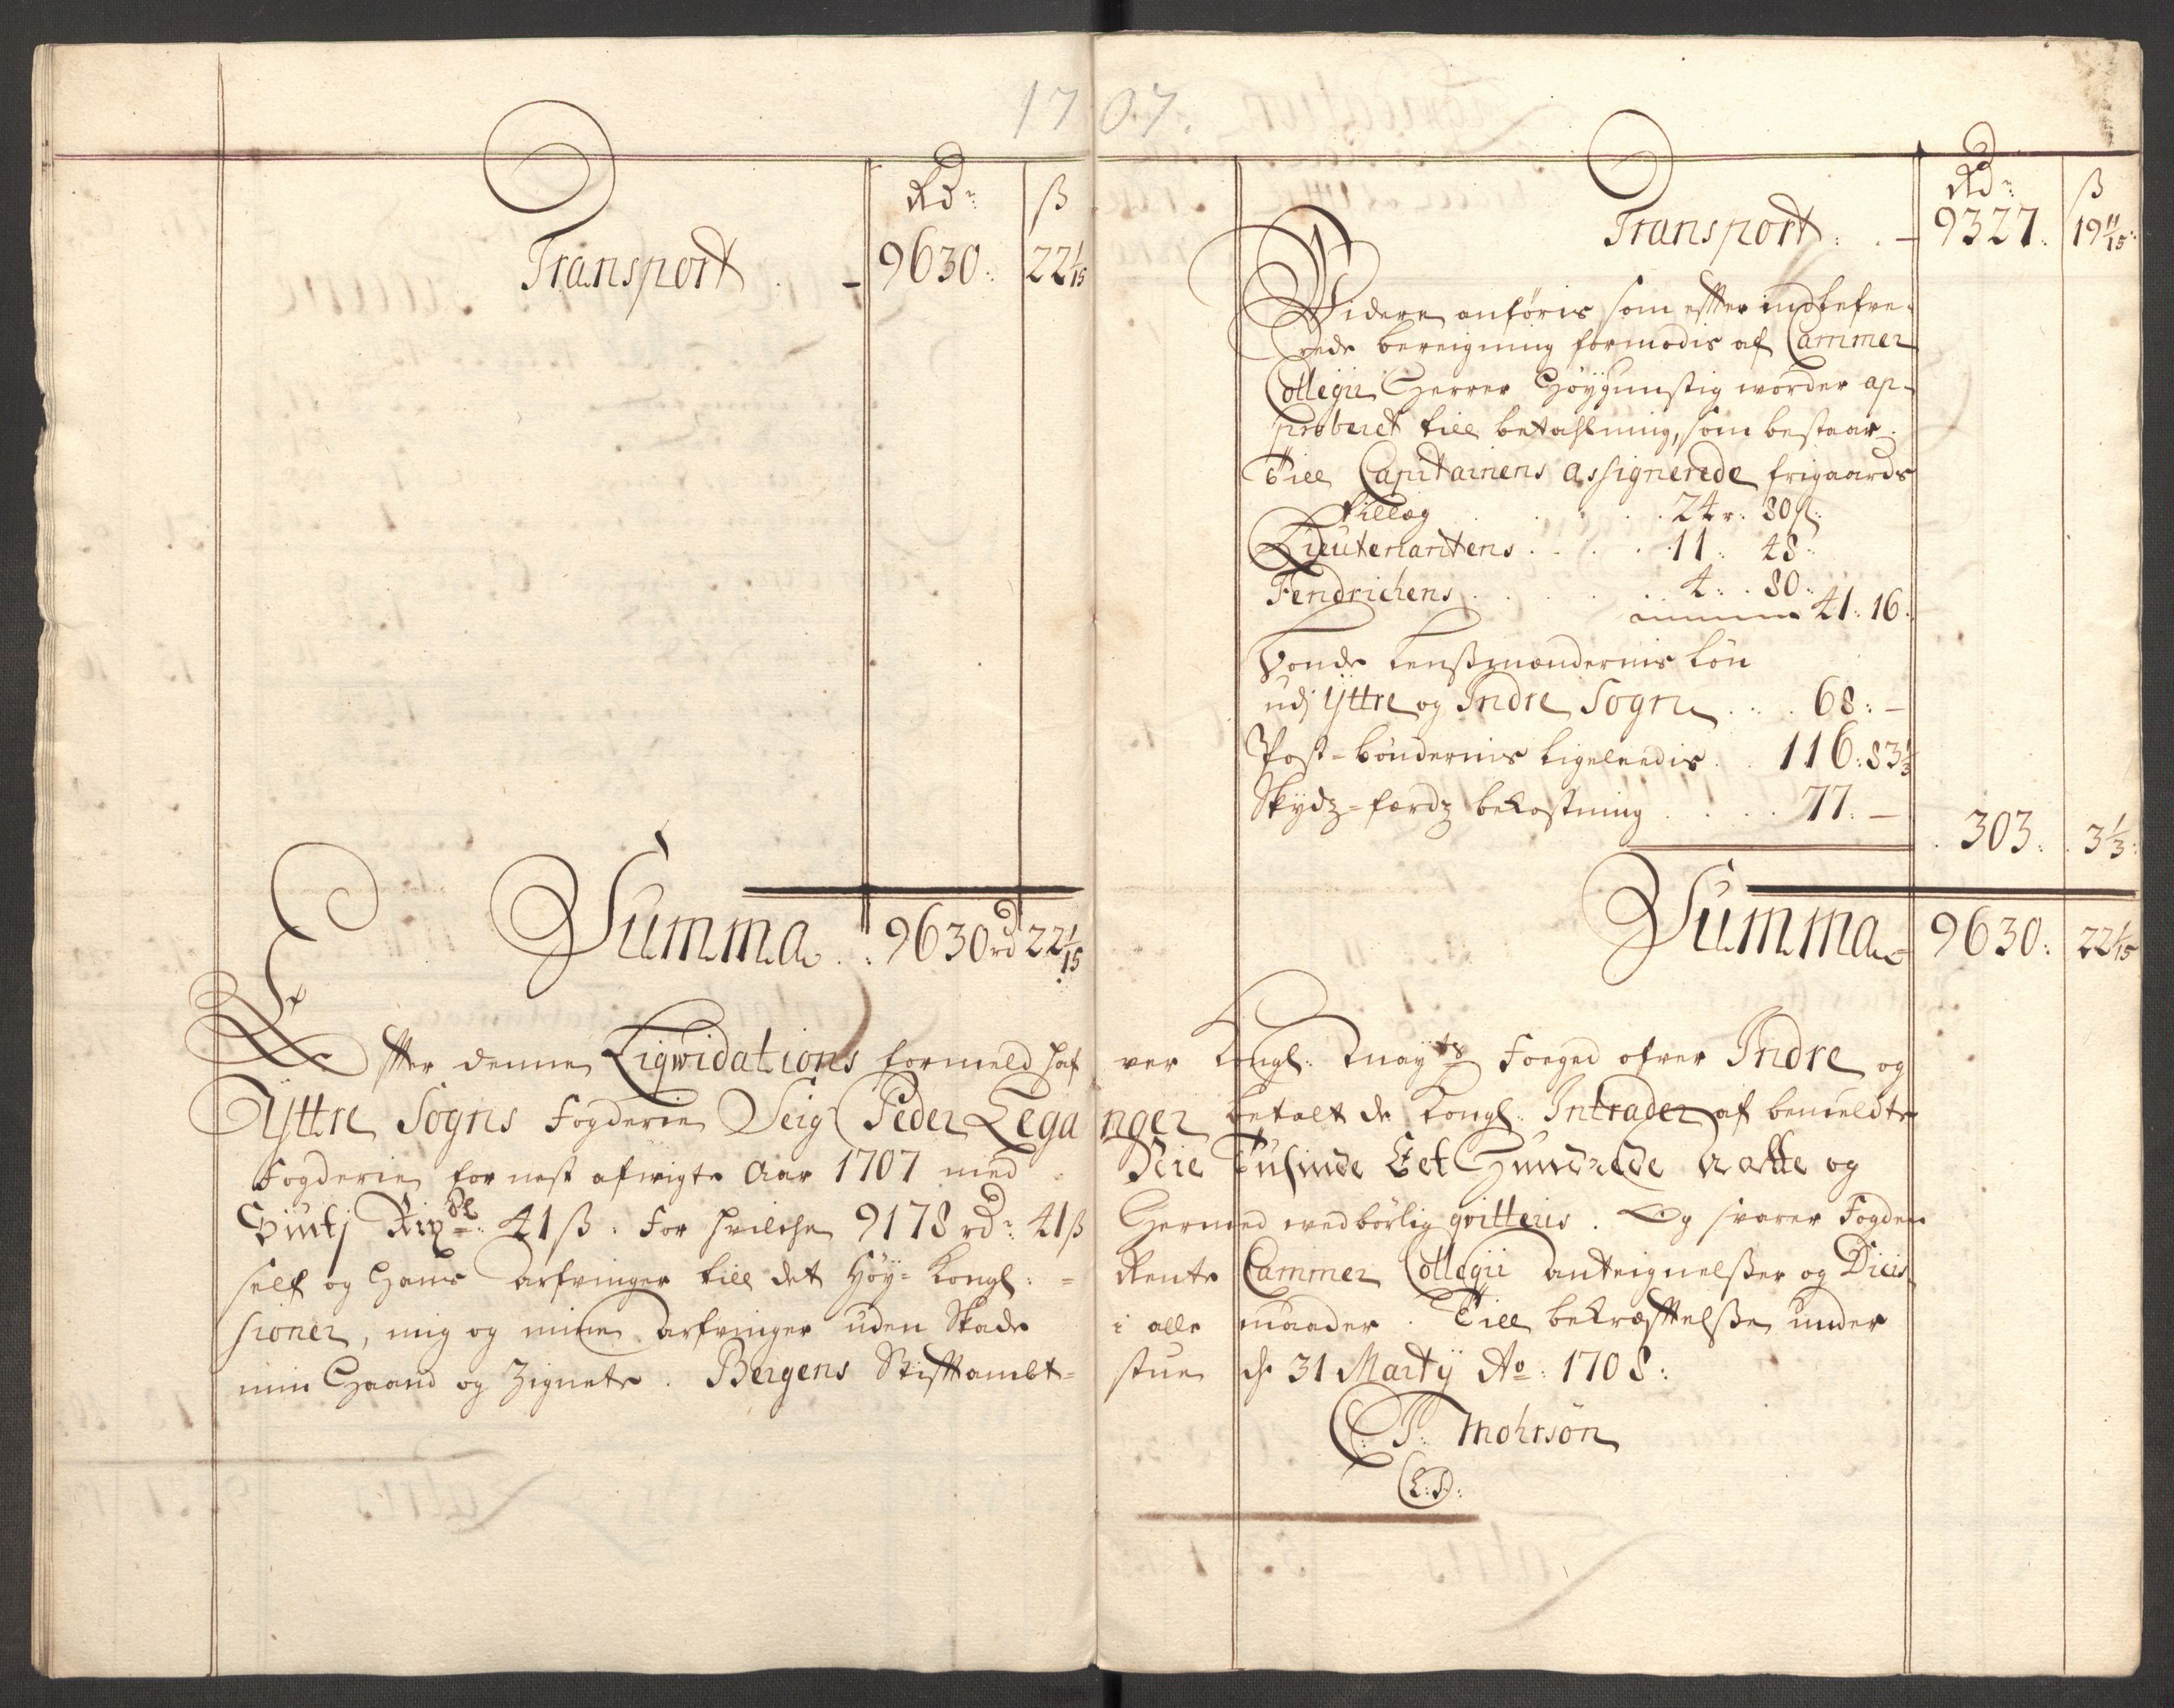 1707.
Rd: ß
Transport . - 9630: 22 1/15
Summa . : 9630 rd 22 1/15
Rd: ß
Transport : . - 9327: 19 11/15:
Videre anføris som efter indlefve-
rede bereigning formodis af Cammer
Collegii Herrer Høygunstig worder ap-
proberet till betahlning, som bestaar.
Till Capitainens assignerede frigaards
tillæg . . . . 24 r. 80 ß:
Lieutenantens . . . . 11: 48:
Fendrichens . . . . 4: . 80:
41: 16:
Bonde Lenßmændernis Løn
udj Yttre og Indre Sogn . . . 68: -
Post-bøndernis ligeleedis . . 116: 83 1/3
Skydz-færdz bekostning . . . . 77: -
303: 3 1/3:
Summa 9630: 22 1/15
Effter denne Liqwidations formeld haf ver Kongl: Mayts Foeged ofver Indre og
Yttre Sogns Fogderie Seig Peder Lega nger betalt de Kongl: Intrader af bemeldte
Fogderie for nest afvigte Aar 1707 med Nie Tusinde Eet Hundrede otte og
Siutj Rixdl: 41 ß. For hvilche 9178 rd: 41 ß Hermed vedbørlig qvitteris. Og svarer Fogden
self og Hans Arfvinger till det Høy-Kongl: = Rente Cammer Collegii Anteignelßer og Dicis
sioner, mig og mine Arfvinger uden Skade i alle maader. Till bekræfftelße under
min Haand og Zignete. Bergens Stifftambt= stue d: 31 Martij Ao: 1708:
C: P: Mohrsøn
(L: S):